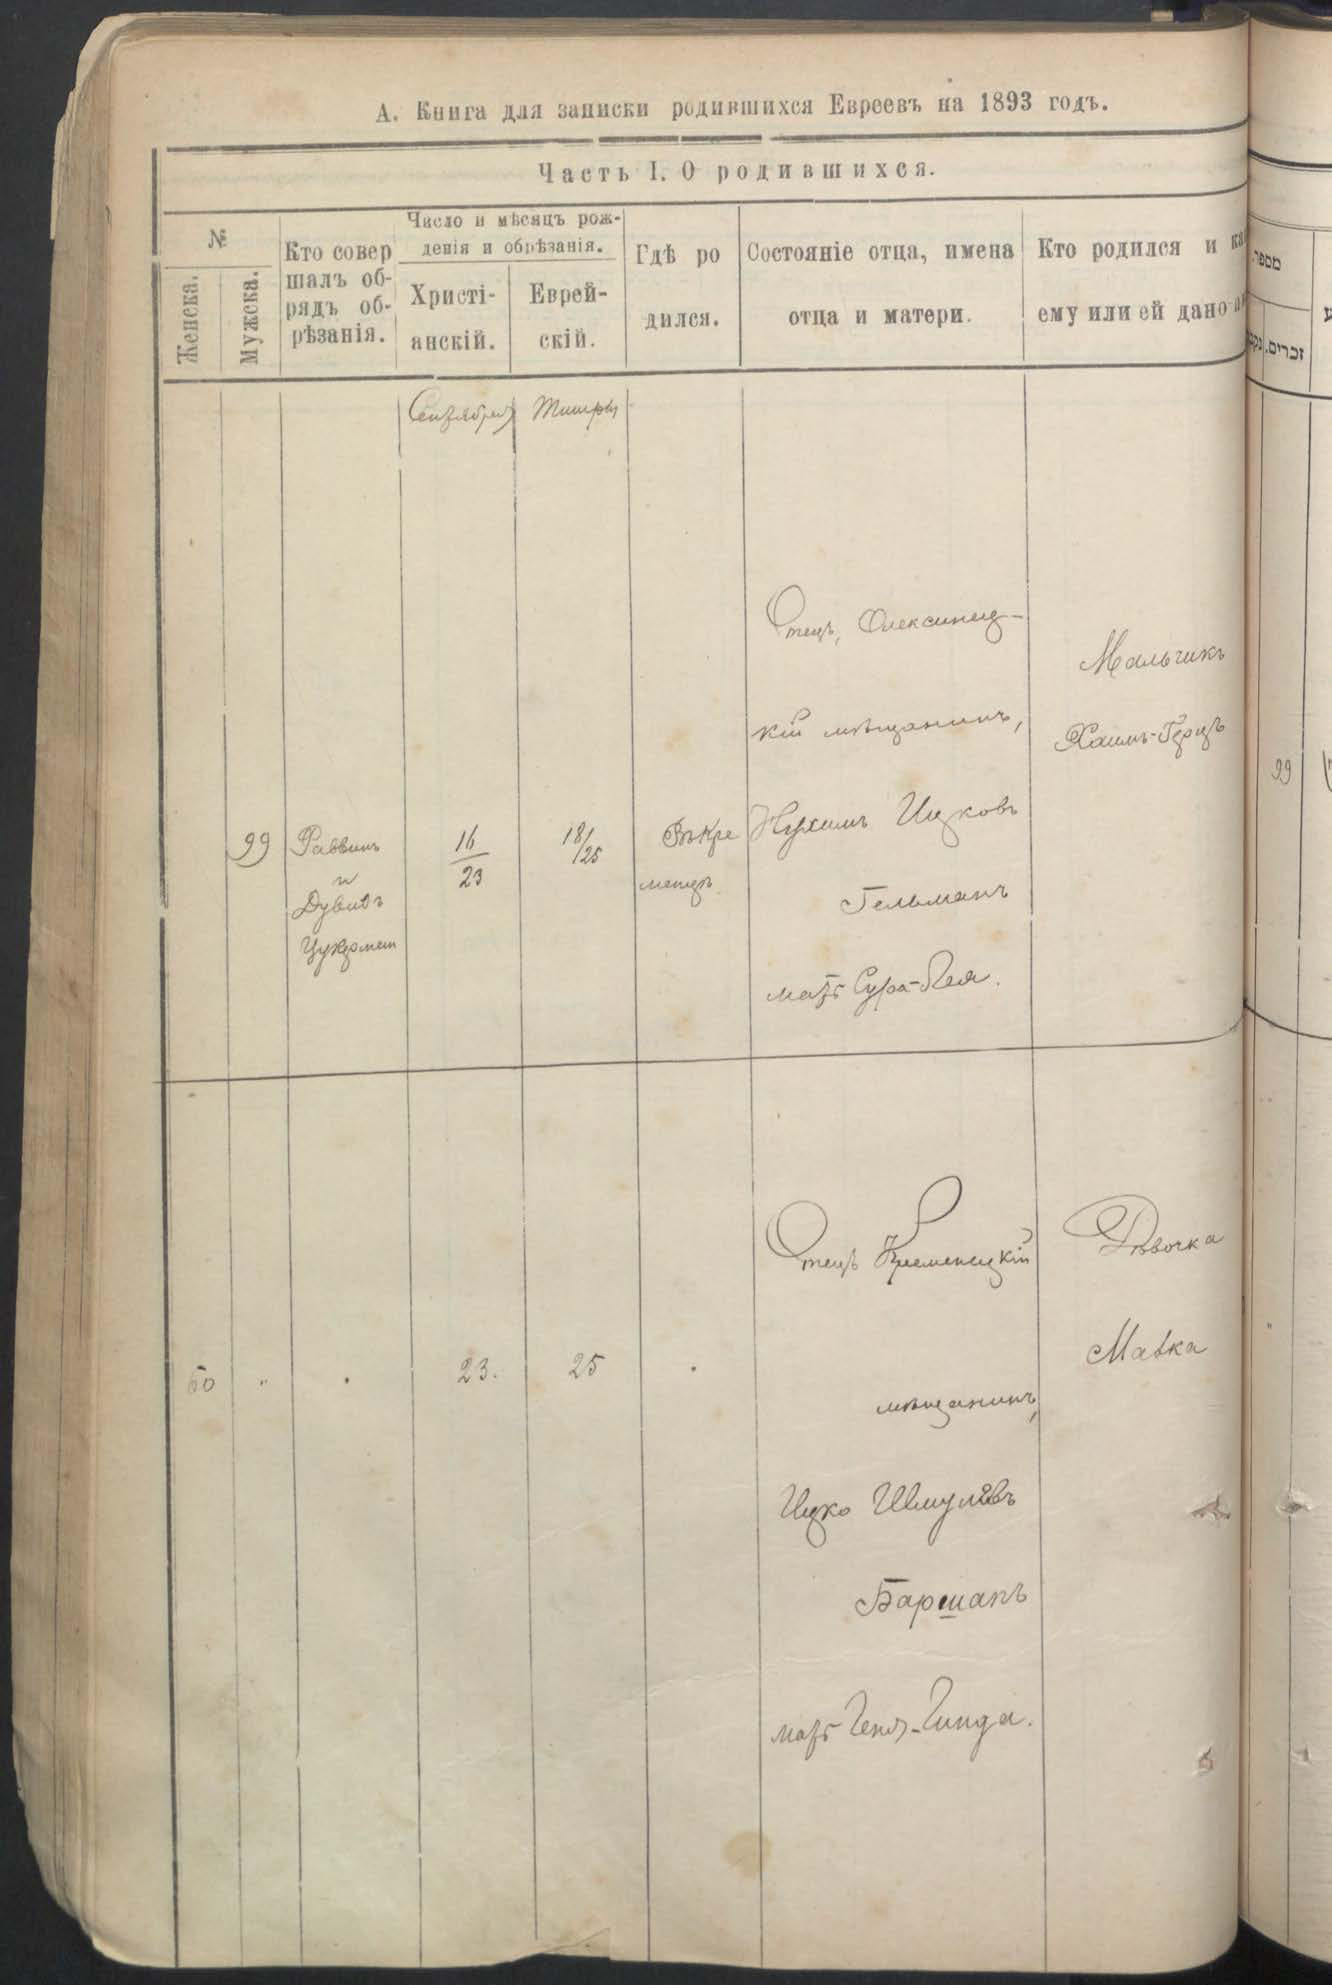 А. Книга для записки родившихся Евреевъ на 1893 годъ.
Часть I. О родившихся.
№
Женска.
Мужска.
Кто совер
шалъ об-
рядъ об-
рѣзанія.
Число и мѣсяцъ рож-
денія и обрѣзанія.
Христі-
анскій.
Еврей-
скій.
Гдѣ ро
дился.
Состояніе отца, имена
отца и матери.
Кто родился и ка
ему или ей дано
מספר
זכרים.
Сентября
Тишры
99
Раввинъ
и
Дувидъ
16
23
18/25
Въ Кре
менцѣ
Отецъ, Олексинец-
кій мѣщанинъ,
Нухимъ Ицковъ
Гельманъ
мать Сура-Лея.
Мальчикъ
Хаимъ-Герцъ
99
60
"
.
23.
25
.
Отецъ Кременецкій
мѣщанинъ,
Ицко Шмулевъ
Баршакъ
мать Геня-Гинда.
Дѣвочка
Малка
"